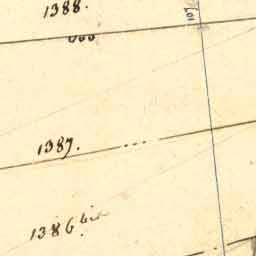 1388.
107
1387.
1386 bis